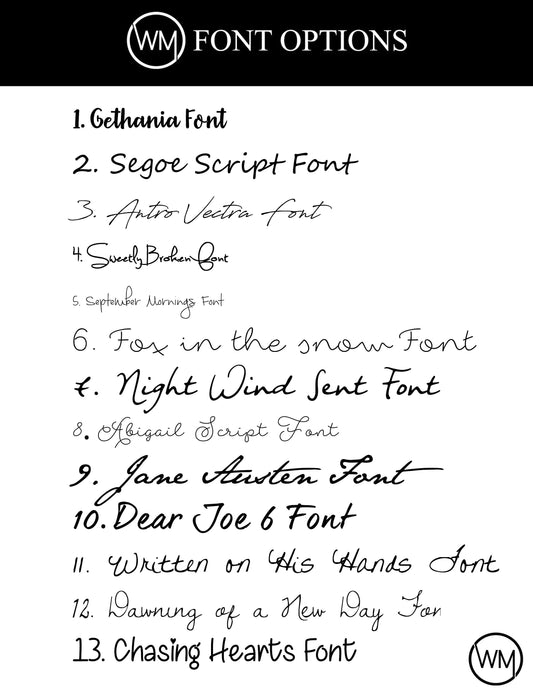 WM FONT OPTIONS
1. Gethania Font
2. Segoe Script Font
3. Antro Vectra font
4. Sweetly Broken Font
5. September Mornings Font
6. Fox in the snow Font
7. Night Wind Sent Font
8. Abigail Script Font
9. Jane Austen Font
10. Dear Joe 6 Font
11. Written on His Hands Font
12. Dawning of a New Day Fon
13. Chasing Hearts Font
WM